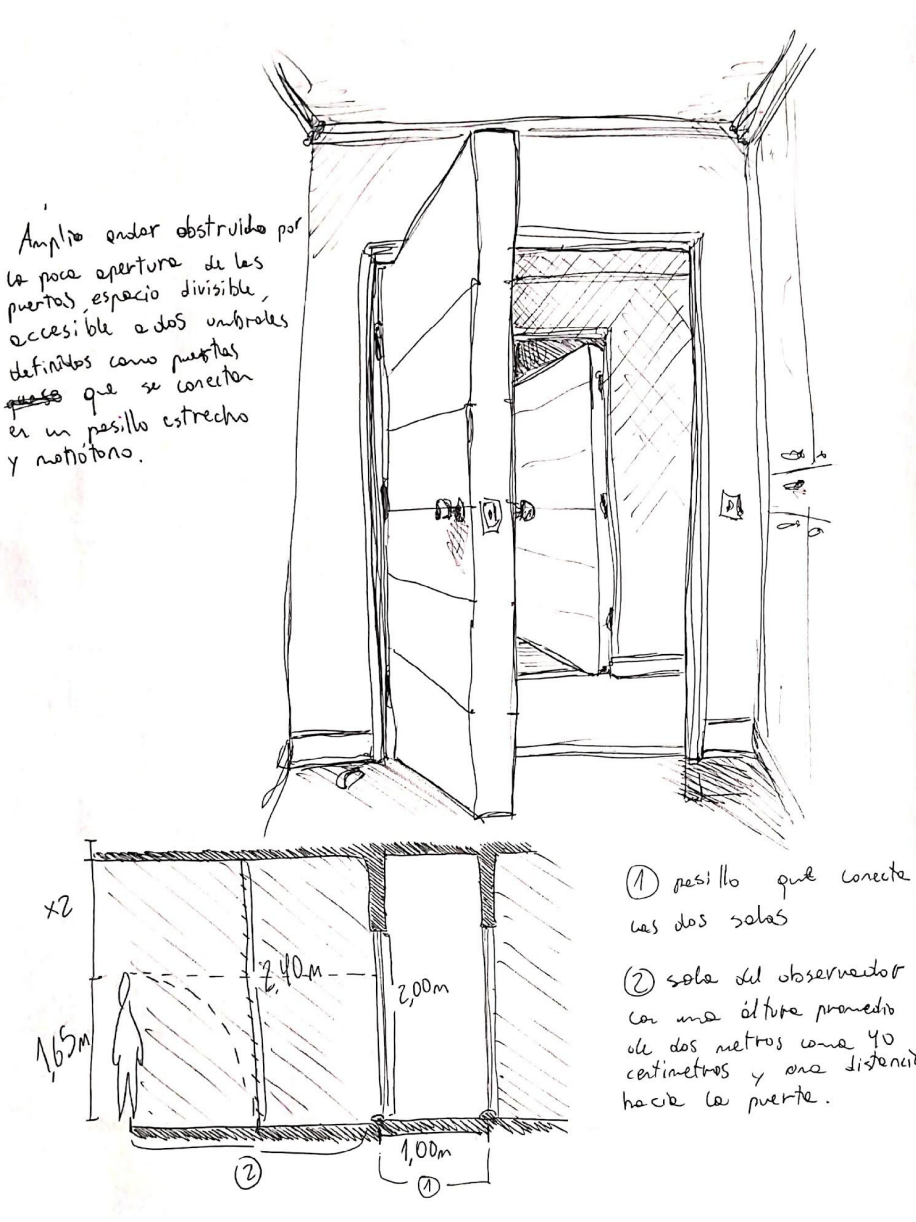 Amplio andar obstruido por
la poca apertura de las
puertas, espacio divisible,
accesible a dos umbrales
definidos como puertas
que se conectan
en un pasillo estrecho
y monótono.
x2
1,65m
2,40m
2,00m
1,00m
②
①
① pasillo que conecta
las dos salas
② sala del observador
con una áltura promedio
de dos metros coma 40
centimetros y una distancia
hacia la puerta.